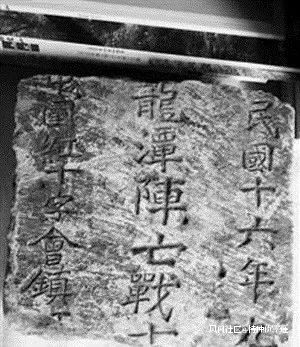 民國十六年九
龍潭陣亡戰士
國紅十字會鎮